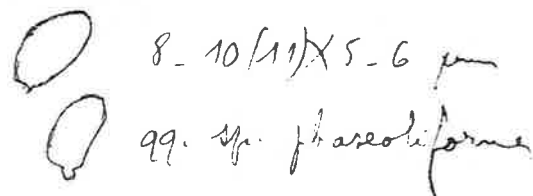 8-10(11)X5-6 µm
qq. sp. phaseoliforme